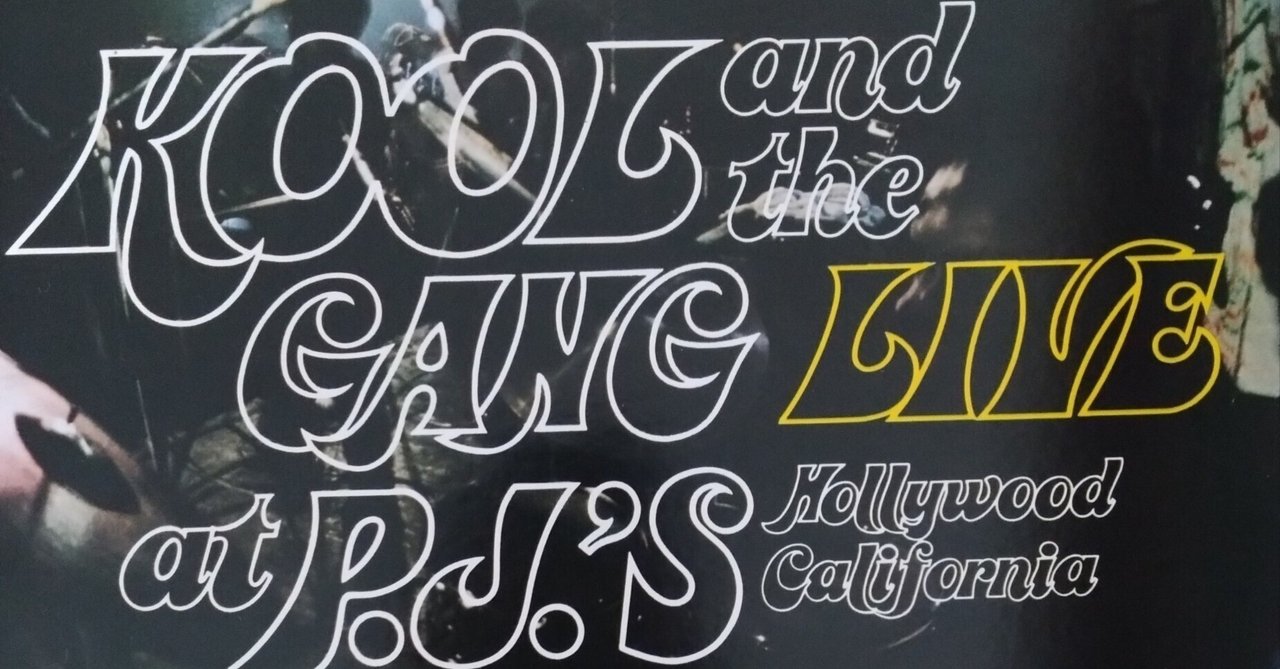 KOOL and
the
GANG LIVE
at P.J.'S Hollywood
California